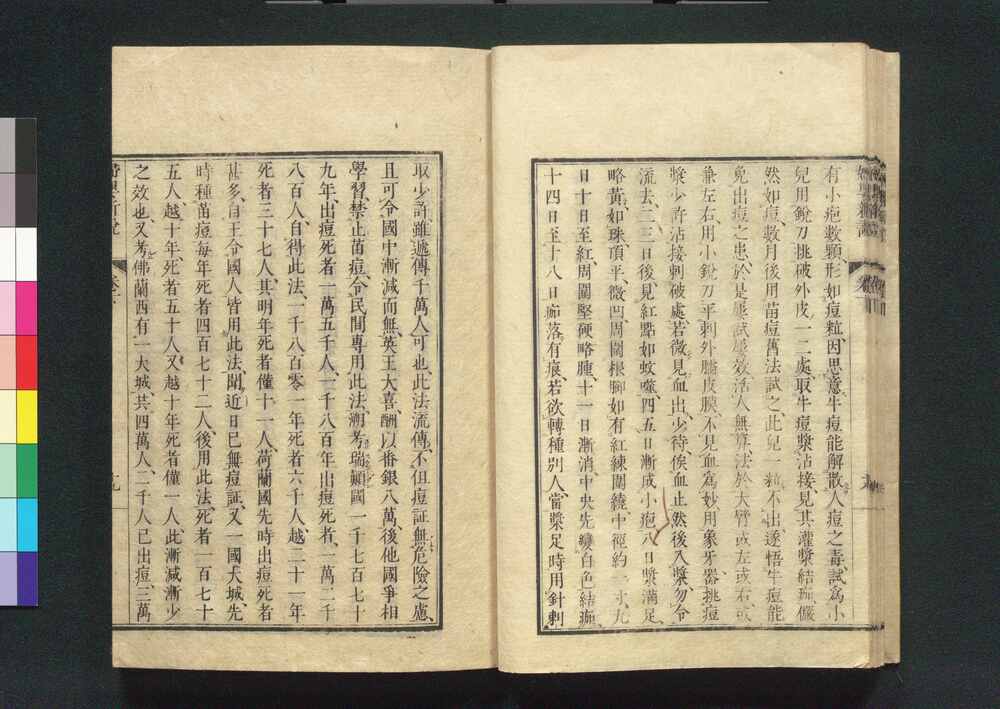 有小疱數顆、形如痘粒、因思意、牛痘能解散人痘之毒、試爲小
兒用銳刀挑破外皮、一二處取牛痘漿沾接、見其灌漿結痂、儼
然如痘、數月後用苗痘舊法試之、此兒一粒不出、遂悟牛痘能
免出痘之患、於是屢試屢效、活人無算、法於大臂或左或右、或
兼左右、用小銳刀平刺外膚皮膜、不見血爲妙、用象牙器挑痘
漿少許、沾接刺破處、若微見血出、少待俟血止、然後入漿、勿令
流去、二三日後、見紅點如蚊噬、四五日漸成小疱、八日漿滿足、
略黃、如珠頂平、微凹、周圍根脚如有紅練圍繞、中徑約一分、九
日十日至紅周圍堅硬略腫、十一日漸消、中央先變白色結痂、
十四日至十八日痂落有痕、若欲轉種別人、當漿足時用針刺
取少許、雖遞傳千萬人可也、此法流傳、不但痘証無危險之慮、
且可令國中漸減而無、英王大喜、酬以番銀八萬、後他國爭相
學習、禁止苗痘、令民間專用此法、溯考瑞顚國一千七百七十
九年、出痘死者一萬五千人、一千八百年出痘死者、一萬二千
八百人、自得此法、一千八百零一年死者六千人、越二十一年
死者三十七人、其明年死者僅十一人、荷蘭國先時出痘死者
甚多、自王令國人皆用此法、聞近日已無痘証、又一國大城、先
時種苗痘、每年死者四百七十二人、後用此法、死者一百七十
五人、越十年、死者五十人、又越十年死者僅一人、此漸減漸少
之效也、又考佛蘭西有一大城、共四萬人、二千人已出痘、三萬